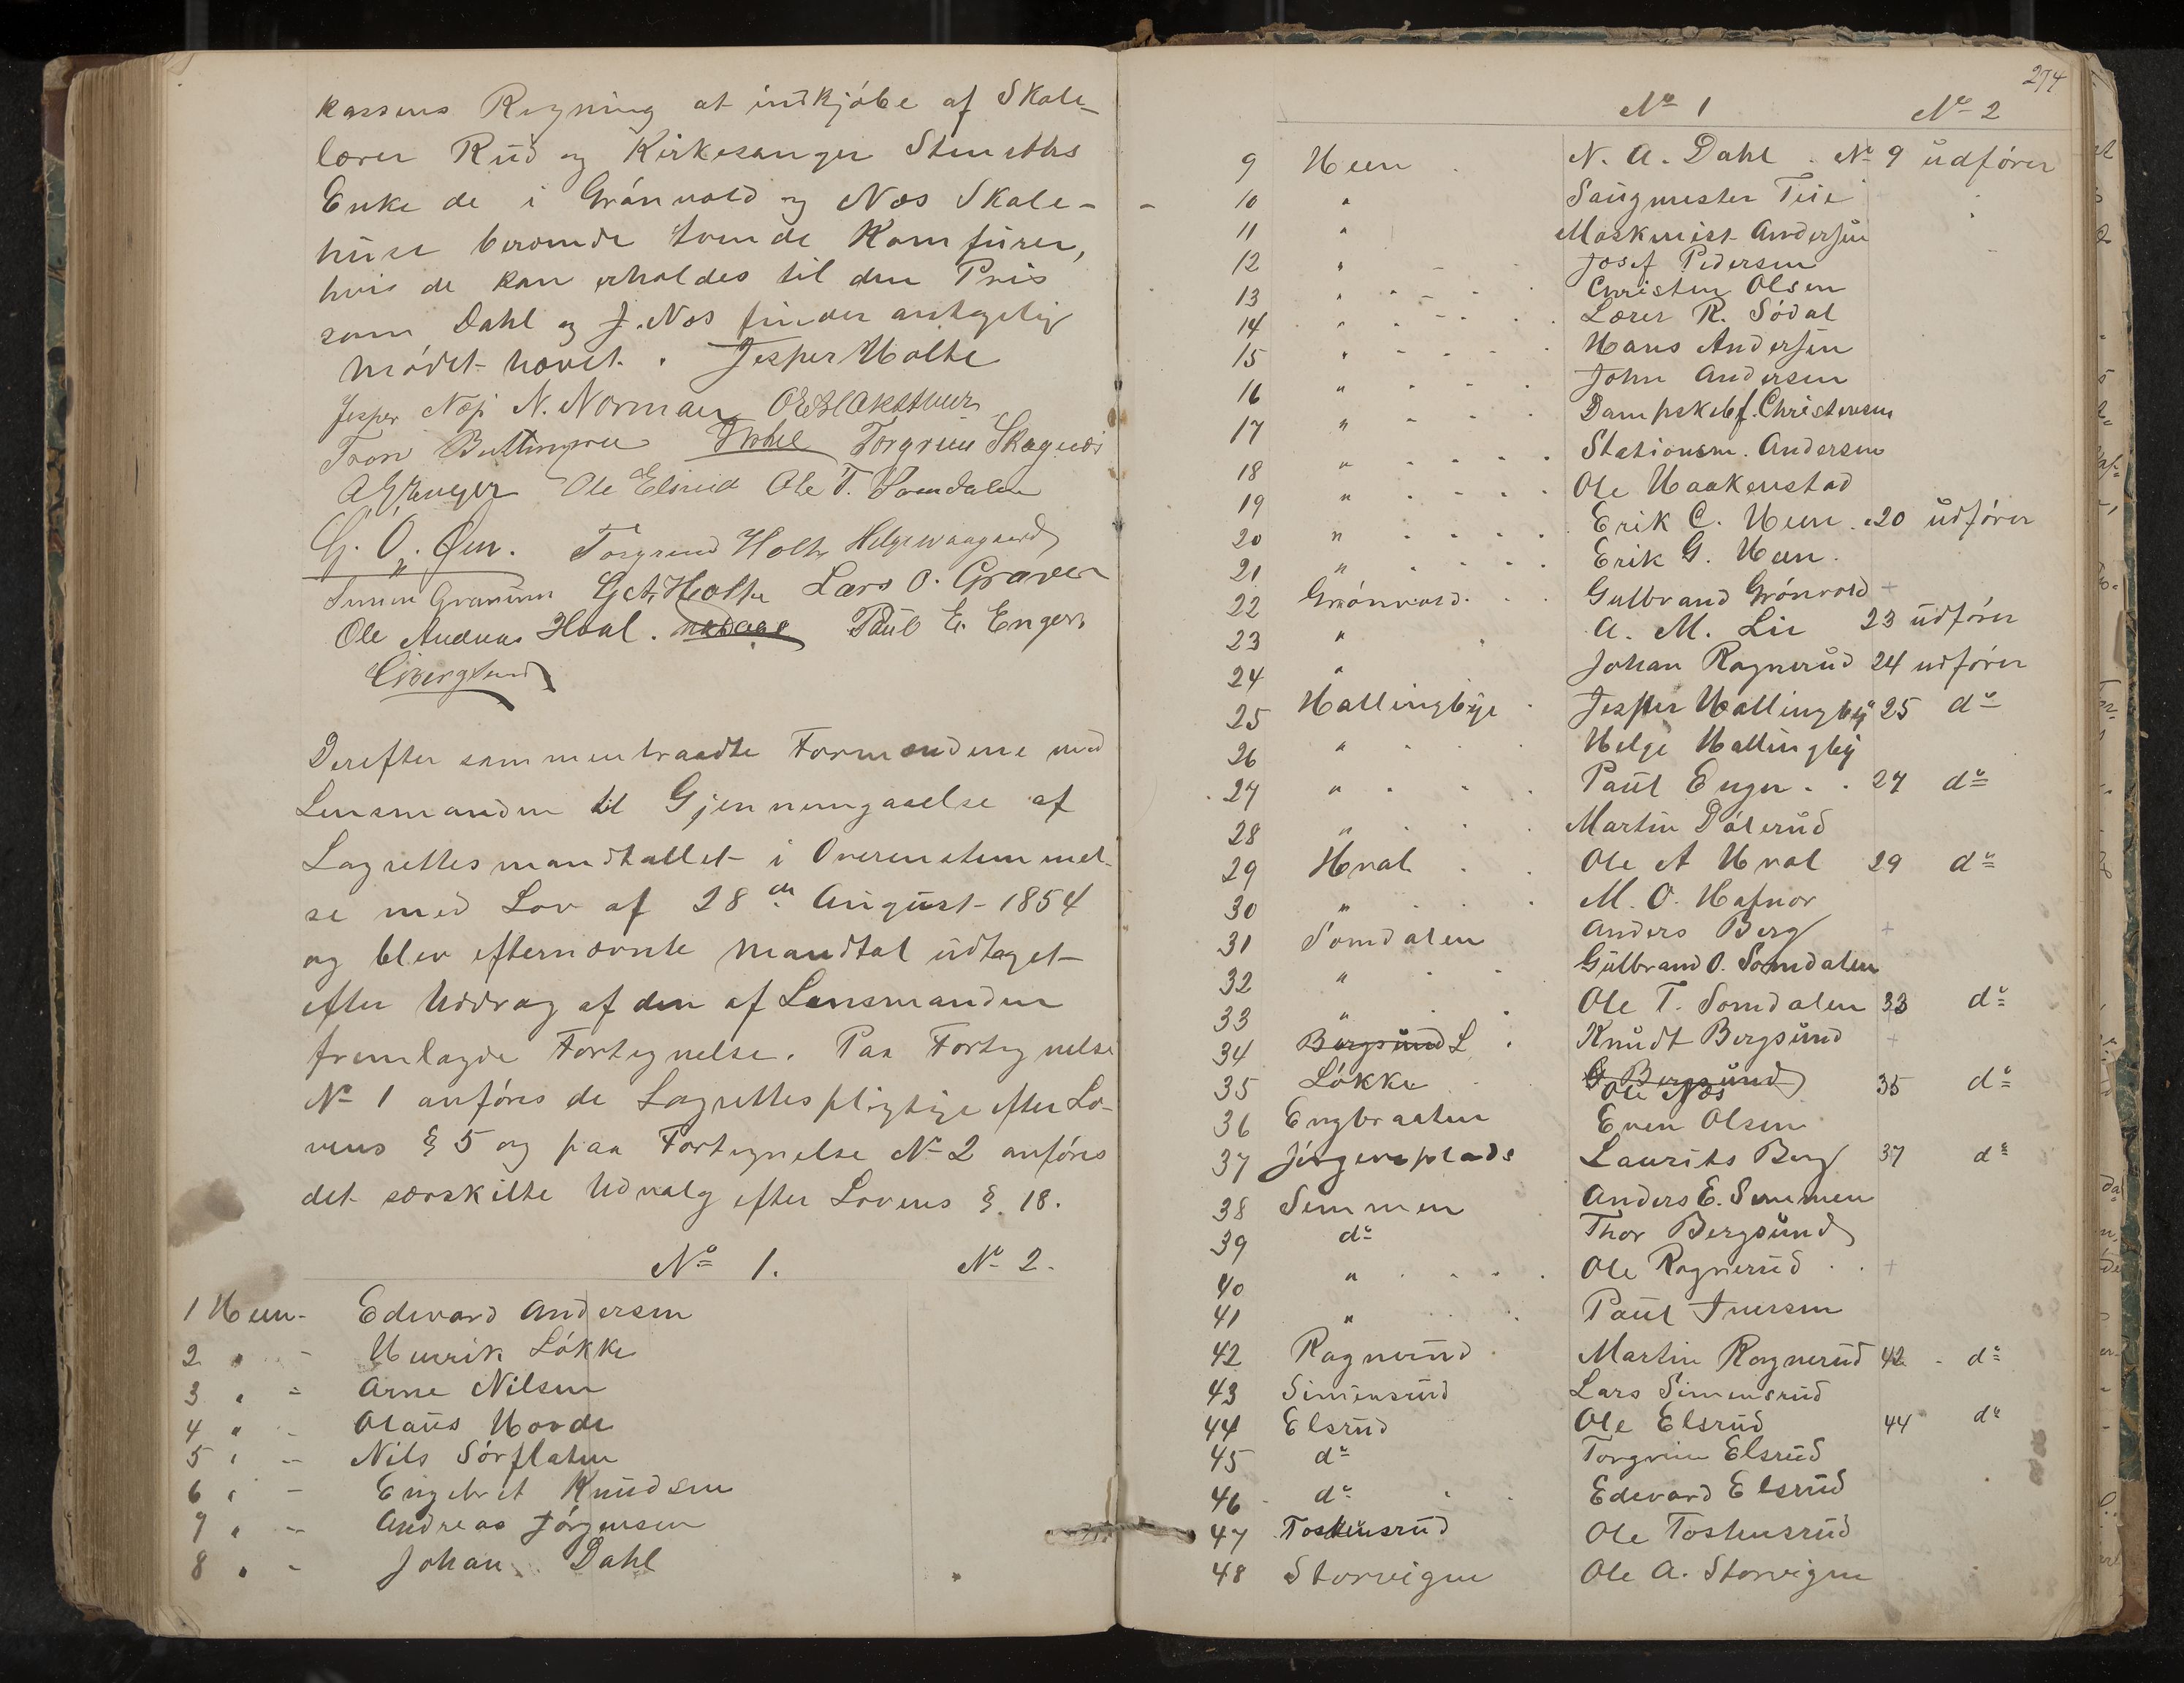 kassens Regning at indkjøbe af Skole-
lærer Rud og Kirkesanger Stenseths
Enke de i Grønvold og Næs Skole-
huse beroende tvende Komfurer,
hvis de kan erholdes til den Pris
som Dahl og J. Næs finder antagelig
Mødet hævet. Jesper Holte
Jesper Næs N. Norman
Torgrim Skagnæs
Ole Elsrud Ole T. Somdalen
G. O. Øen. Torgrim Holte Helge Waagaard
Lars O. Graven
Ole Andreas Hval. Paul E. Enger
E Berglund
Derefter sammentraadte Formændene med
Lensmanden til Gjennemgaaelse af
Lagrettesmandtallet i Overenstemmel-
se med Lov af 28de August 1854
og blev efternævnte Mandtal udtaget
efter Uddrag af den af Lensmanden
fremlagde Fortegnelse. Paa Fortegnelse
No 1 anføres de Lagrettespligtige efter Lo-
vens § 5 og paa Fortegnelse No 2 anføres
det særskilte Udvalg efter Lovens § 18.
No 1. No 2.
1 Heen - Edevard Andersen
2 " - Henrik Løkke
3 " - Arne Nilsen
4 " - Olaus Hovde
5 " - Nils Sørflaten
6 " - Engebret Knudsen
7 " - Andreas Jørgensen
8 " - Johan Dahl
274
No 1 No 2
9 Heen N. A. Dahl No 9 udfører
10 " Saugmester Teie
11 " Maskmist Andersen
12 " Josef Pedersen
13 " Christen Olsen
14 " Lærer R. Sødal
15 " Hans Andersen
16 " John Andersen
17 " Dampskibsf. Christensen
18 " Stationsm. Andersen
19 " Ole Haakenstad
20 " Erik C. Heen 20 udfører
21 " Erik G. Heen
22 Grønvold Gulbrand Grønvold +
23 " A. M. Lie 23 udfører
24 " Johan Ragnerud 24 udfører
25 Hallingbye Jesper Hallingby 25 do
26 " Helge Hallingby
27 " Paul Enger 27 do
28 " Martin Dølerud
29 Hval Ole A Hval 29 do
30 " M. O. Hafnor
31 Somdalen Anders Berg +
32 " Gulbrand O. Somdalen
33 " Ole T. Somdalen 33 do
34 Bergsund L Knudt Bergsund +
35 Løkke G Bergsund Ole Næs 35 do
36 Engbraaten Even Olsen
37 Jørgensplads Laurits Berg 37 do
38 Semmen Anders E. Semmen
39 do Thor Bergsund
40 " Ole Ragnerud +
41 " Paul Iversen
42 Ragnerud Martin Ragnerud 42 do
43 Simensrud Lars Simensrud
44 Elsrud Ole Elsrud 44 do
45 do Torgrim Elsrud
46 do Edevard Elsrud
47 Tostensrud Ole Tostensrud
48 Storveigen Ole A. Storveigen